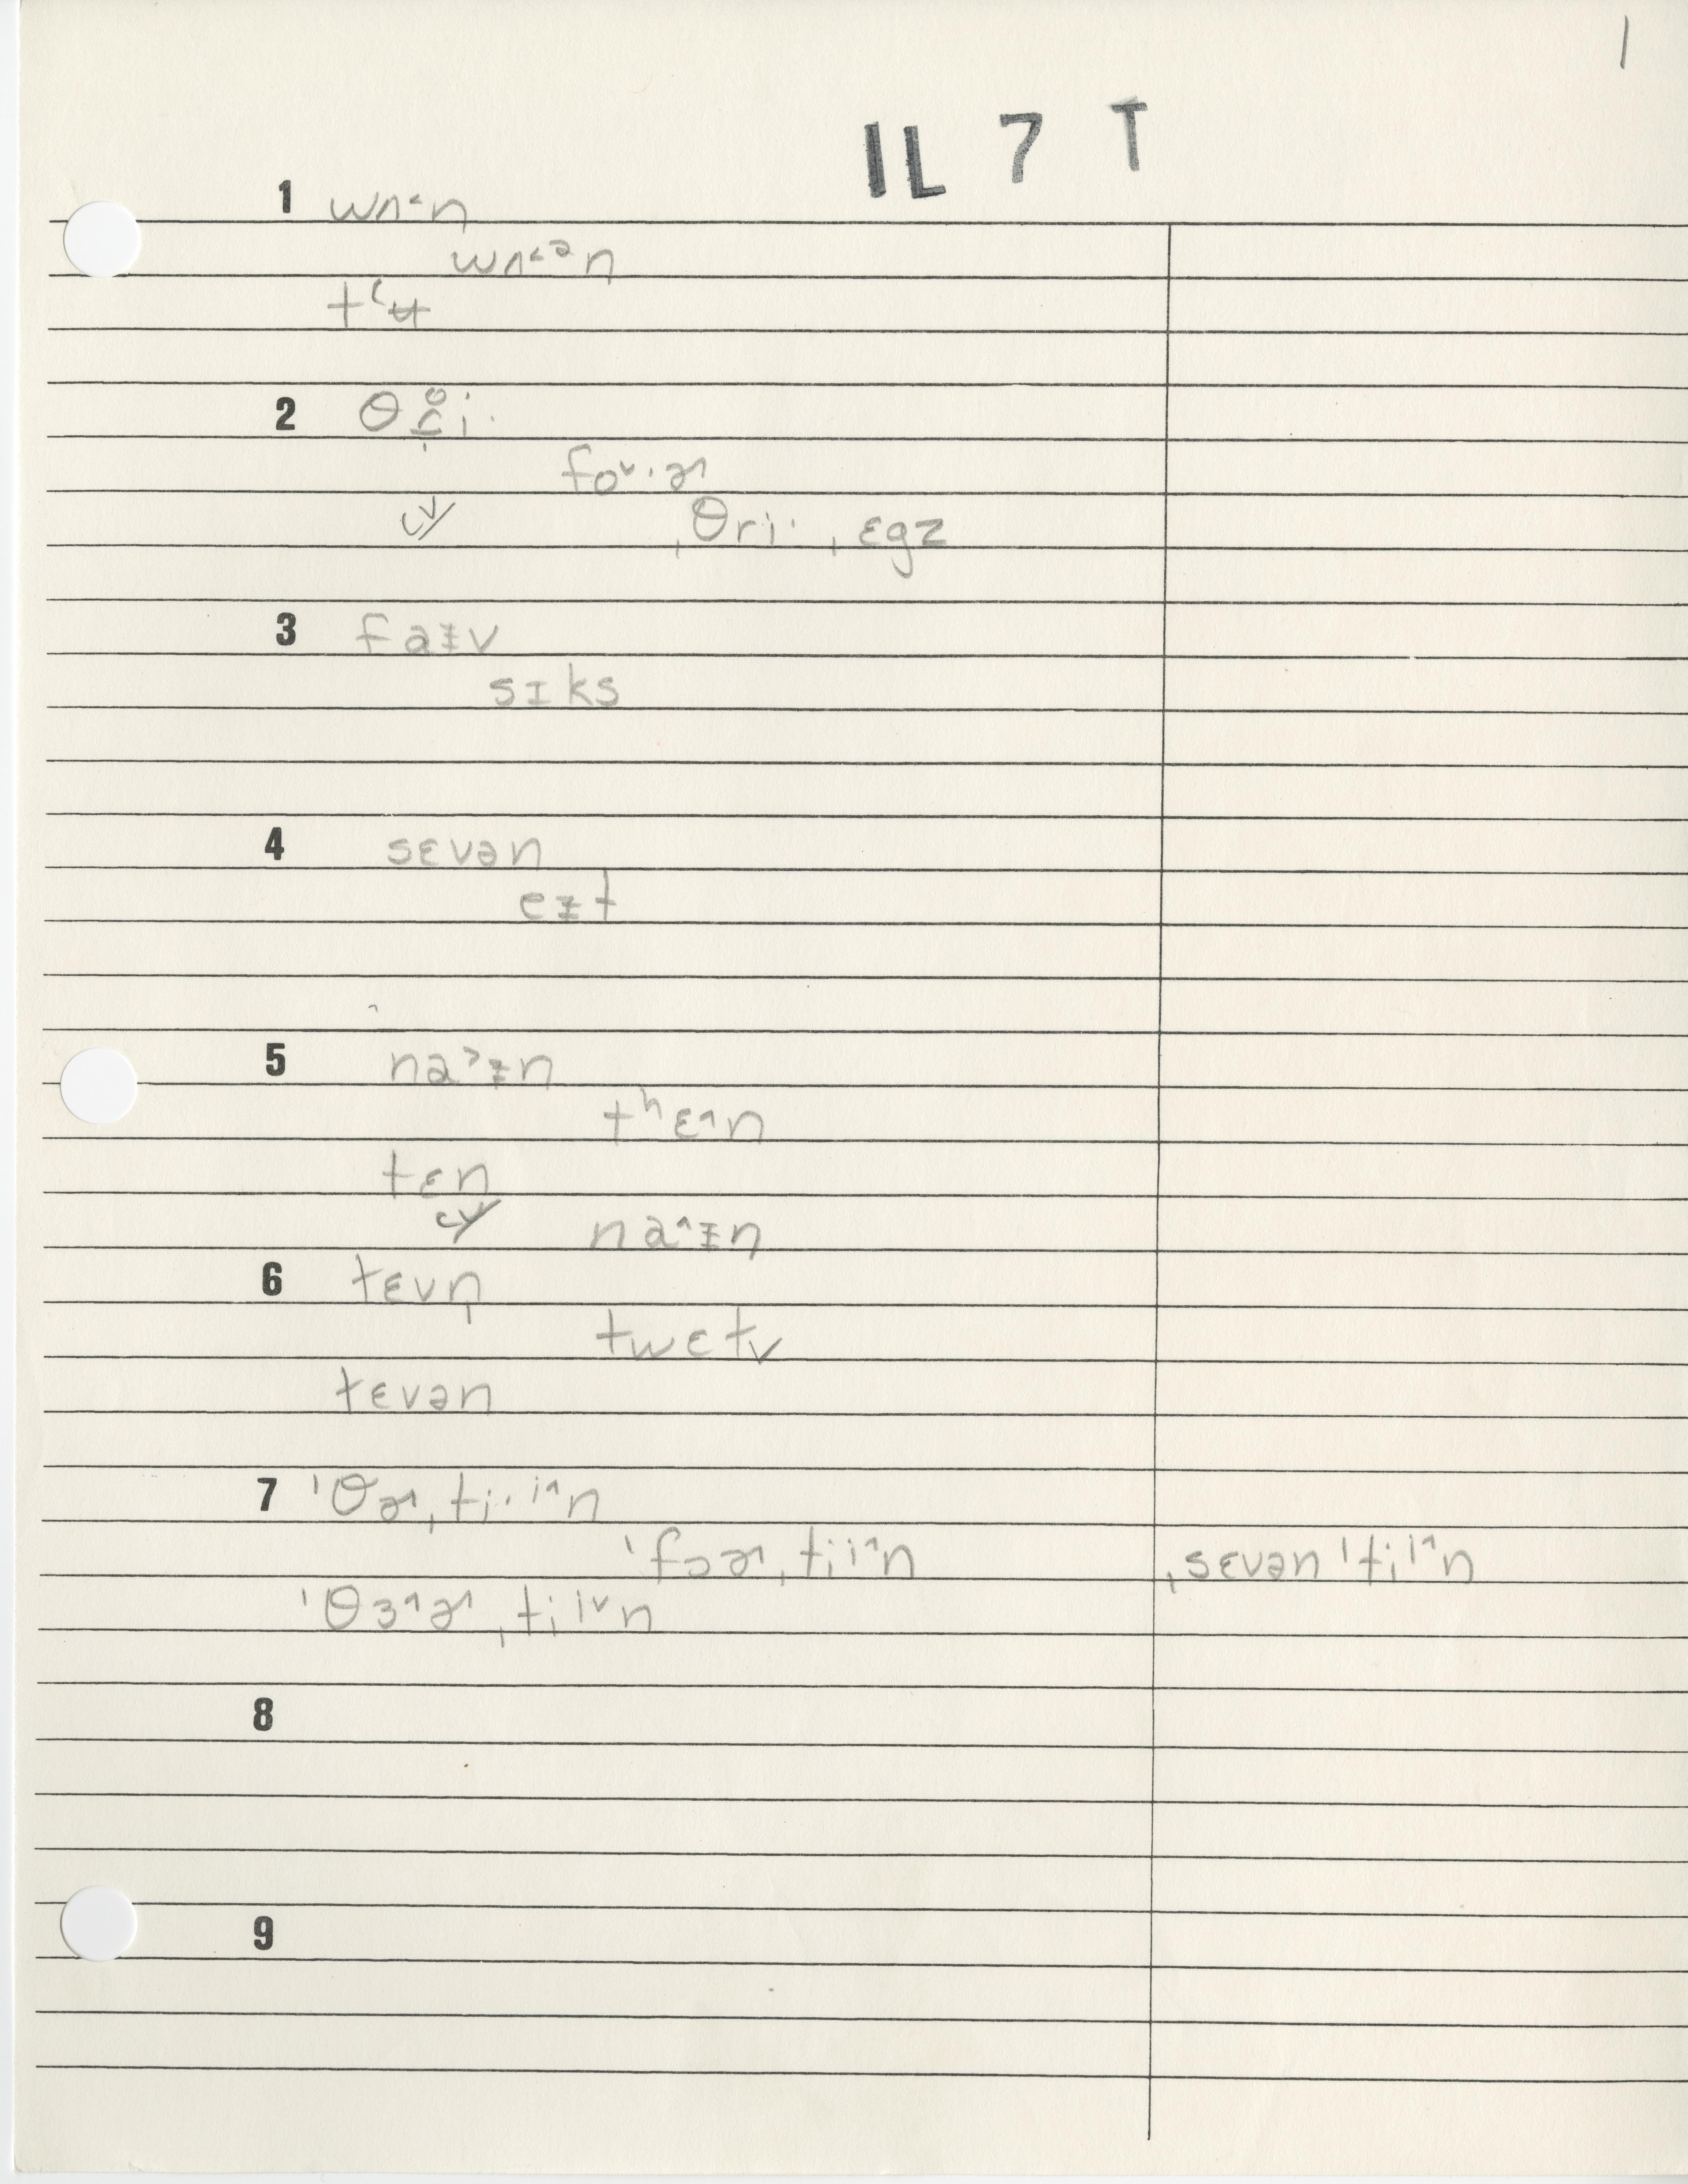 1
IL 7 T
1 wʌ˂n
wʌ˂ᵊn
tʻʉ
2 θr̥i·
foᵛ·ɚ
cv
ˌθri·ˌɛgz
3 faᵻv
sɪks
4 sɛvən
eᵻt
5 na˃ᵻn
tʰɛ^n
tɛn
cv
na^ᵻn
6 tɛvn̩
twɛtv
tɛvən
7 ˈθɚˌti·ⁱ^n
ˈfɔɚˌtiⁱ^n ˌsɛvənˈtiⁱ^n
ˈθɜ^ɚˌtiⁱᵛn
8
9